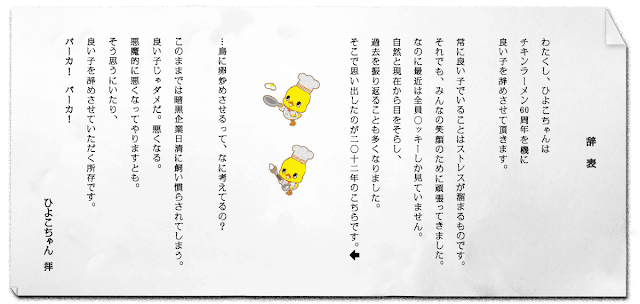 辞表
わたくし、ひよこちゃんは
チキンラーメン60周年を機に
良い子を辞めさせて頂きます。
常に良い子でいることはストレスが溜まるものです。
それでも、みんなの笑顔のために頑張ってきました。
なのに最近は全員〇ッキーしか見ていません。
自然と現在から目をそらし、
過去を振り返ることも多くなりました。
そこで思い出したのが二〇十二年のこちらです。⬅
…鳥に卵炒めさせるって、なに考えてるの?
このままでは暗黒企業日清に飼い慣らされてしまう。
良い子じゃダメだ。悪くなる。
悪魔的に悪くなってやりますとも。
そう思うにいたり、
良い子を辞めさせていただく所存です。
バーカ! バーカ!
ひよこちゃん 拝